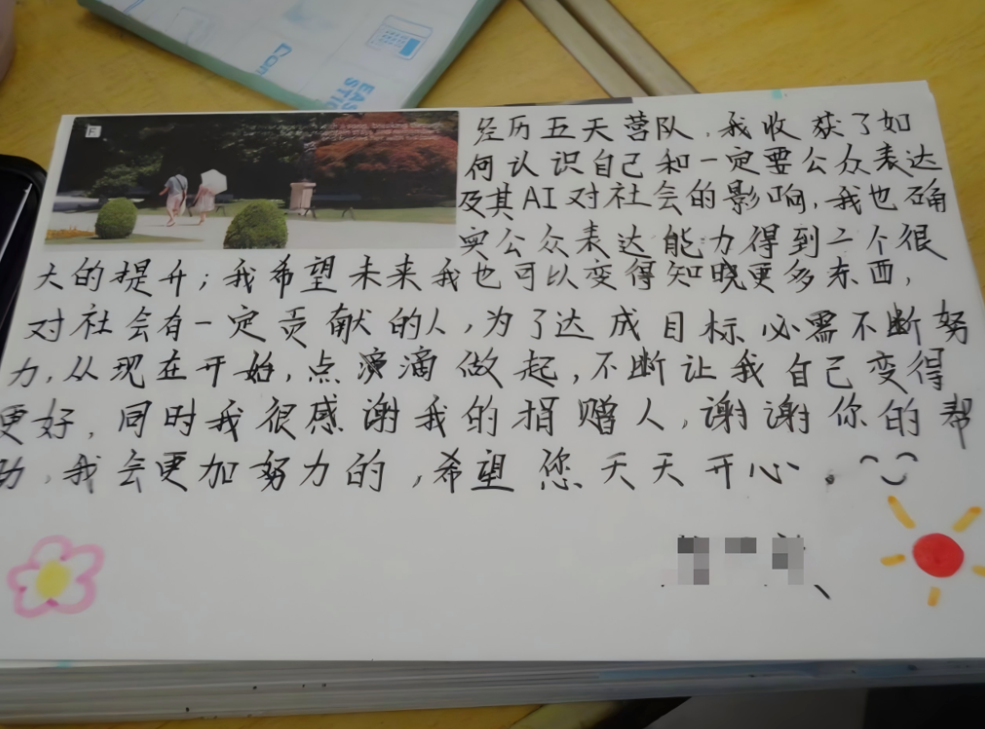 Con
EAS
STI
E
经历五天营队,我收获了如
何认识自己和一定要公众表达
及其AI对社会的影响,我也确
实公众表达能力得到一个很
大的提升;我希望未来我也可以变得知晓更多东西,
对社会有一定贡献的人,为了达成目标必需不断努
力,从现在开始,点滴做起,不断让我自己变得
更好,同时我很感谢我的捐赠人,谢谢你的帮
助,我会更加努力的,希望您天天开心。